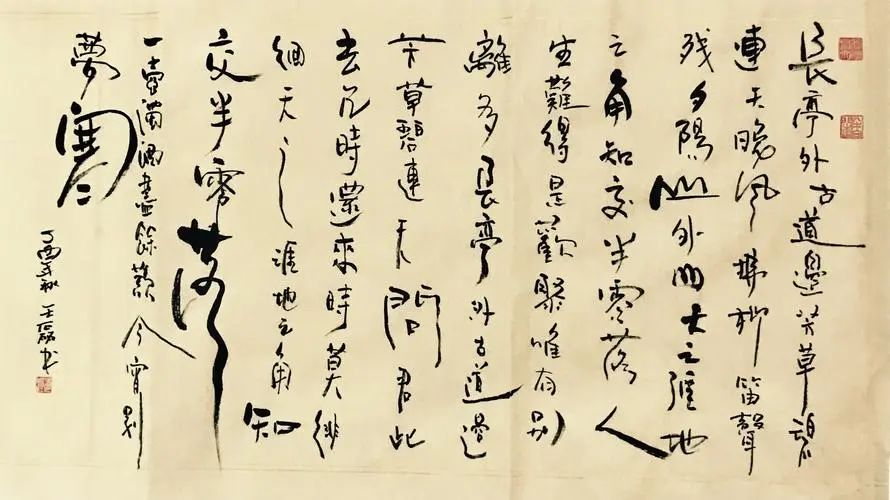 長亭外古道邊芳草碧
連天晚風拂柳笛聲
残夕陽山外山天之涯地
之角知交半零落人
生難得是歡聚唯有别
離多長亭外古道邊
芳草碧連天問君此
去几時還來時莫徘
徊天之涯地之角知
交半零落
一壺濁酒盡餘歡今宵别
夢寒
丁酉秋王磊书